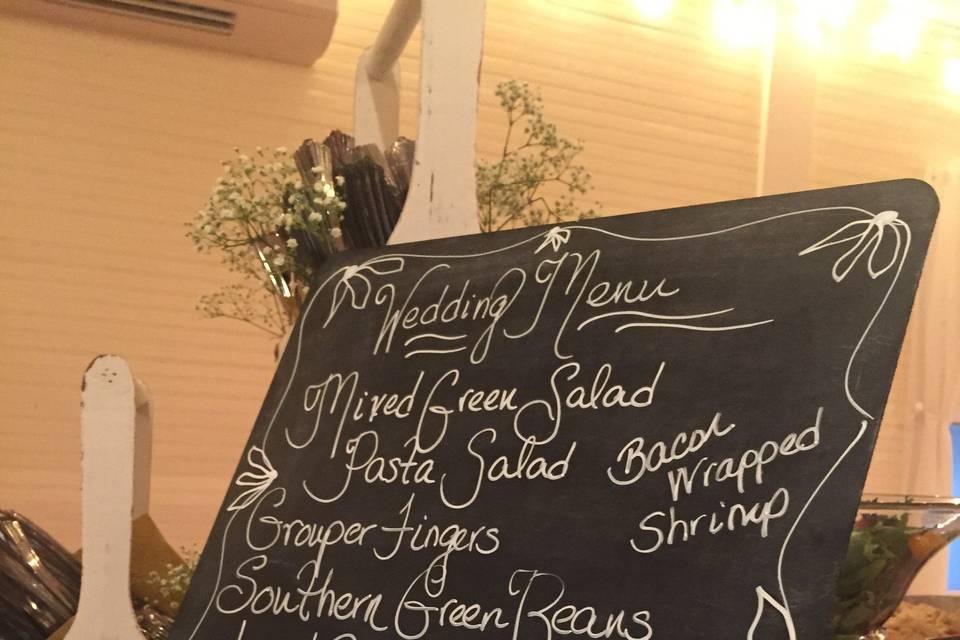 Wedding Menu
Mixed Green Salad
Pasta Salad
Bacon
Wrapped
Shrimp
Grouper Fingers
Southern Green Beans